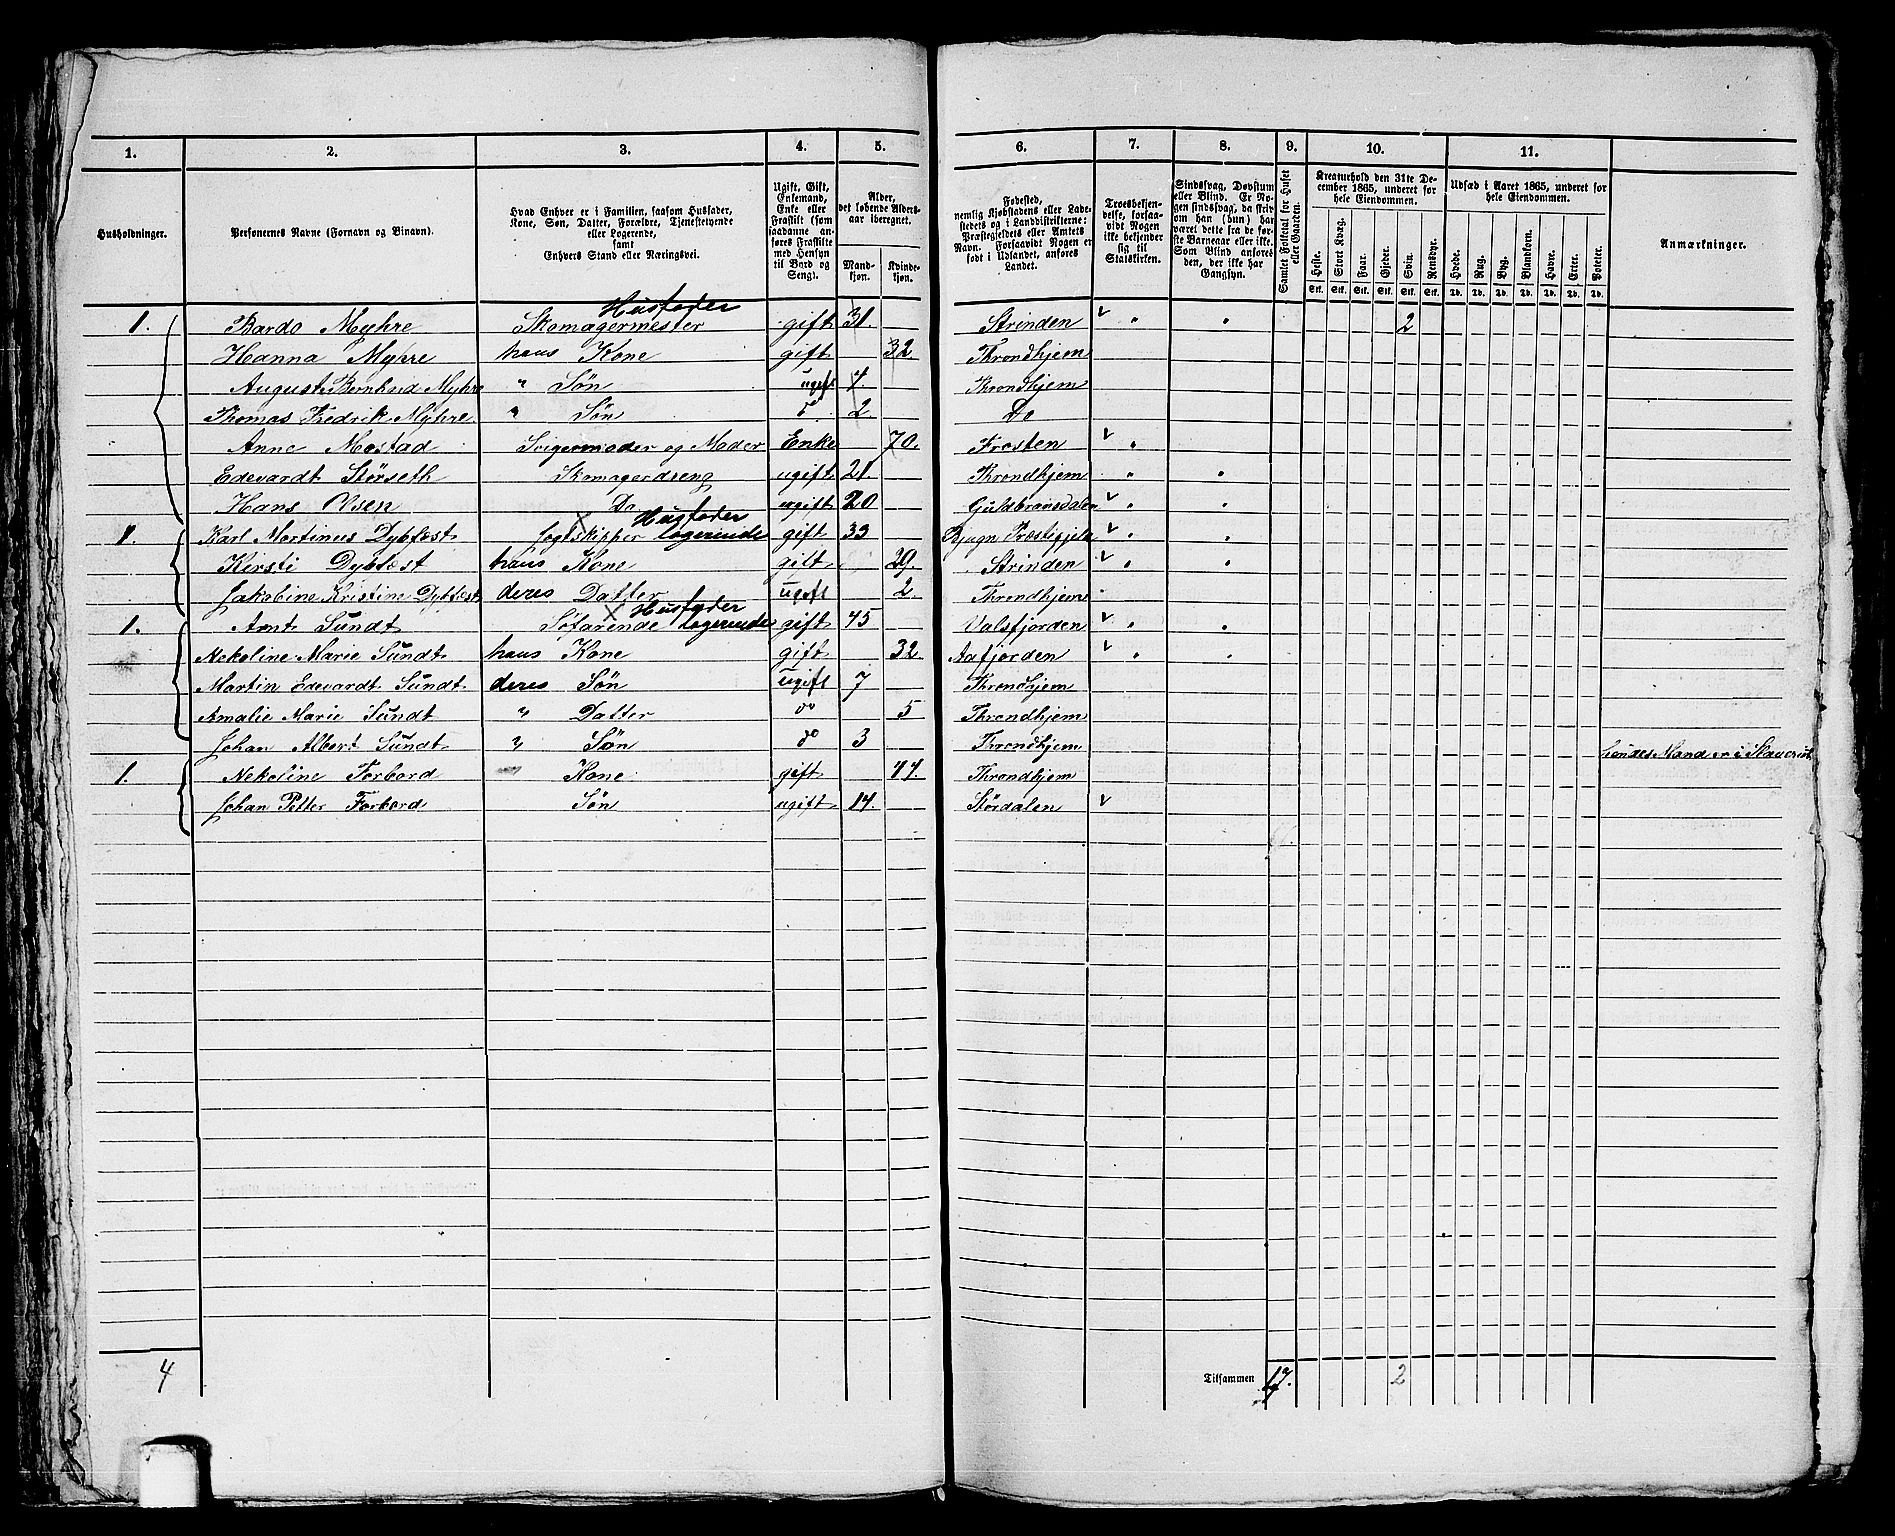 1. 2. 3. 4. 5. 6. 7. 8. 9. 10. 11.
Husholdninger.
Personernes Navne (Fornavn og Binavn).
Hvad Enhver er i Familien, saasom Husfader,
Kone, Søn, Datter, Forældre, Tjenestetyende
eller Logerende,
samt
Enhvers Stand eller Næringsvei.
Ugift, Gift,
Enkemand,
Enke eller
Fraskilt (som
saadanne an-
føres Fraskilte
med Hensyn
til Bord og
Seng).
Alder,
det løbende Alders-
aar iberegnet.
Mand-
kjøn.
Kvinde-
kjøn.
Fødested,
nemlig Kjøbstadens eller Lade-
stedets og i Landdistrikterne:
Præstegjeldets eller Amtets
Navn. Forsaavidt Nogen er
født i Udlandet, anføres
Landet.
Troesbekjen-
delse, forsaa-
vidt Nogen
ikke bekjender
sig til
Statskirken.
Sindssvag, Døvstum
eller Blind. Er No-
gen sindssvag, da skriv
om han (hun) har
været dette fra de før-
ste Barneaar eller ikke.
Som Blind anføres
den, der ikke har
Gangsyn.
Samlet Folketal for Huset
eller Gaarden.
Kreaturhold den 31te De-
cember 1865, underet for
hele Eiendommen.
Heste. Stort Kvæg. Faar. Gjeder. Svin. Rensdyr.
Stk. Stk. Stk. Stk. Stk. Stk.
Udsæd i Aaret 1865, underet for
hele Eiendommen.
Hvede. Rug. Byg. Blandkorn. Havre. Erter. Poteter.
Td. Td. Td. Td. Td. Td. Td.
Anmærkninger.
Husfader
1. Bardo Myhre Skomagermester gift 31. Strinden " " 2
Hanna Myhre hans Kone gift 32 Throndhjem
August Bernhard Myhre " Søn ugift 4. Throndhjem
Thomas Fredrik Myhre " Søn do 2 Do
Anne Mostad Svigermoder og Moder Enke 70. Frosten "
Edevardt Störseth Skomagerdreng ugift 21. Throndhjem " "
Hans Olsen Do ugift 20 Guldbransdalen " "
Husfader
1. Karl Martinus Dybfest Jogtskipper logerende gift 33 Bjugn Præstegjeld " "
Kirsti Dybfest hans Kone gift 29. Strinden " "
Jakobine Kristine Dybfest deres Datter ugift 2. Throndhjem
Husfader
1. Arnt Sundt Söfarende logerende gift 45 Valsfjorden " "
Nekoline Marie Sundt hans Kone gift 32 Aafjorden " "
Martin Edevardt Sundt deres Søn ugift 7 Throndhjem
Amalie Marie Sundt " Datter do 5 Throndhjem
Johan Albert Sundt " Søn do 3 Throndhjem
1. Nekoline Forbord " Kone gift 44. Throndhjem hendes Mand er i
Johan Petter Forbord Søn ugift 14. Stördalen
4 Tilsammen 17. 2